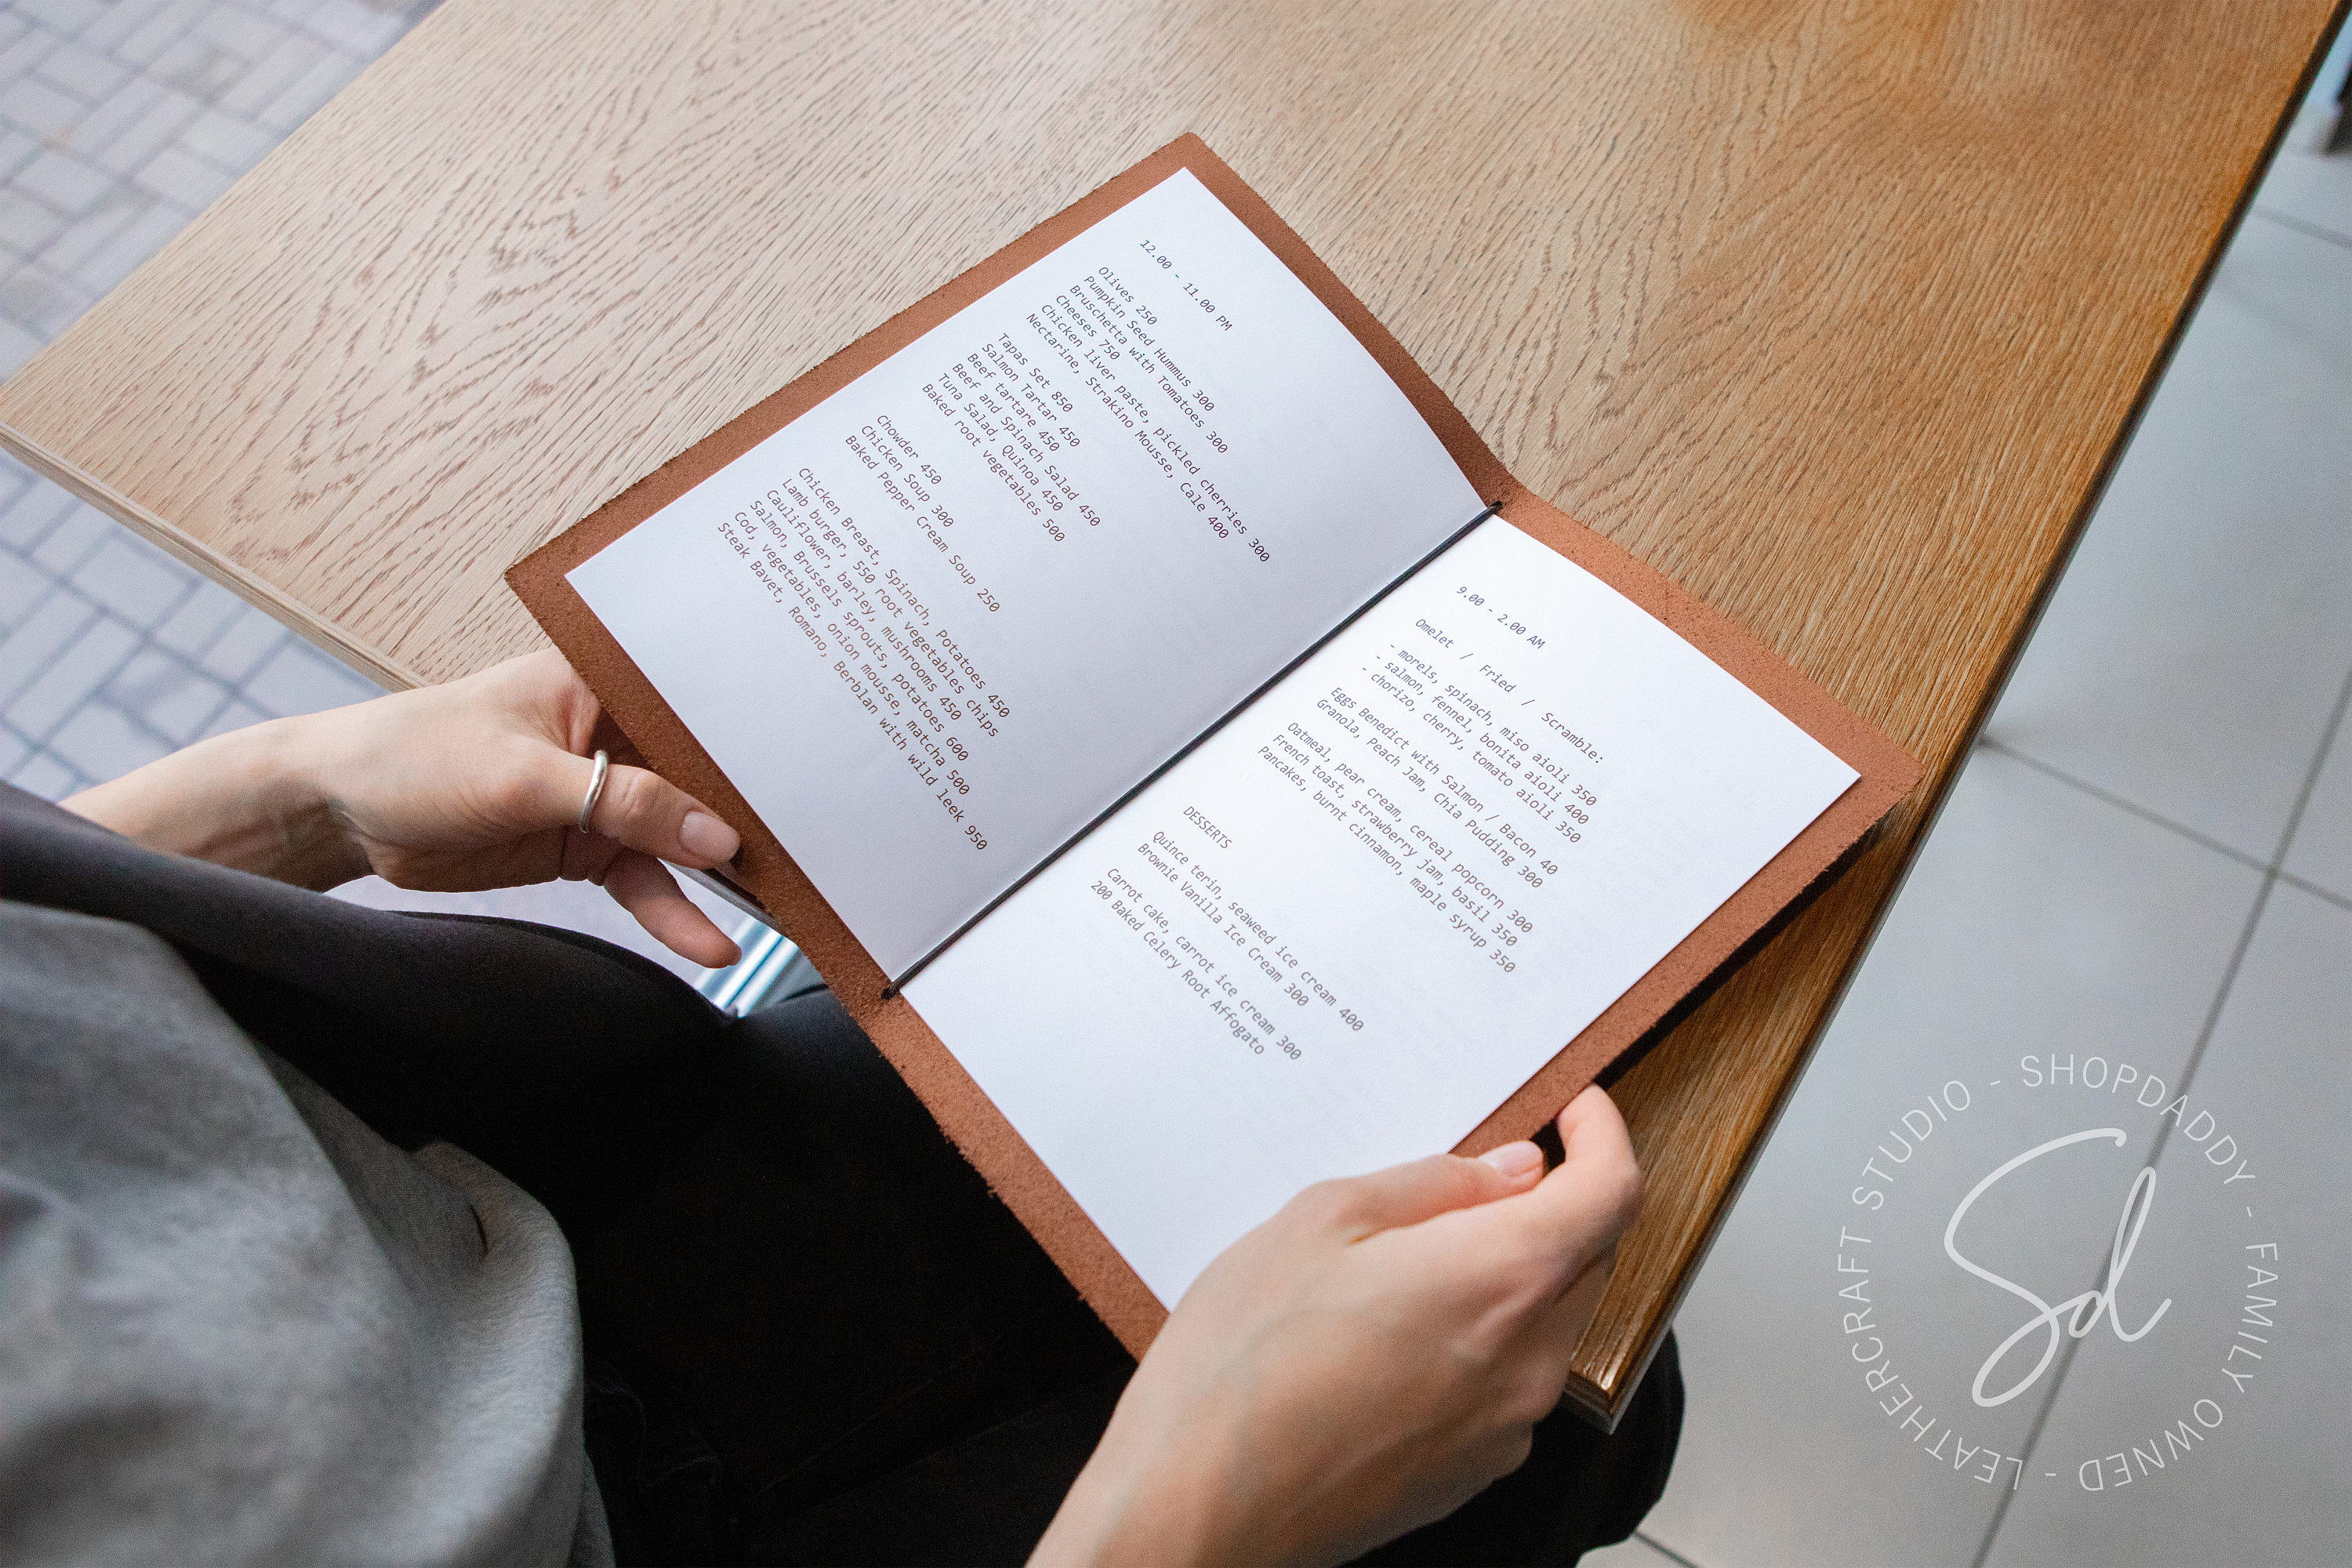 12.00 - 11.00 PM
Olives 250
Pumpkin Seed Hummus 300
Bruschetta with Tomatoes 300
Cheeses 750
Chicken liver paste, pickled cherries 300
Nectarine, Strakino Mousse, Cale 400
Tapas Set 850
Salmon Tartar 450
Beef tartare 450
Beef and Spinach Salad 450
Tuna Salad, Quinoa 450
Baked root vegetables 500
Chowder 450
Chicken Soup 300
Baked Pepper Cream Soup 250
Chicken Breast, Spinach, Potatoes 450
Lamb burger, 550 root vegetables chips
Cauliflower, barley, mushrooms 450
Salmon, Brussels sprouts, potatoes 600
Cod, vegetables, onion mousse, matcha 500
Steak Bavet, Romano, Berblan with wild leek 950
9.00 - 2.00 AM
Omelet / Fried / Scramble:
- morels, spinach, miso aioli 350
- salmon, fennel, bonita aioli 400
- chorizo, cherry, tomato aioli 350
Eggs Benedict with Salmon / Bacon 40
Granola, Peach Jam, Chia Pudding 300
Oatmeal, pear cream, cereal popcorn 300
French toast, strawberry jam, basil 350
Pancakes, burnt cinnamon, maple syrup 350
DESSERTS
Quince terin, seaweed ice cream 400
Brownie Vanilla Ice Cream 300
Carrot cake, carrot ice cream 300
200 Baked Celery Root Affogato
SHOPDADDY - FAMILY OWNED - LEATHERCRAFT STUDIO -
Sd